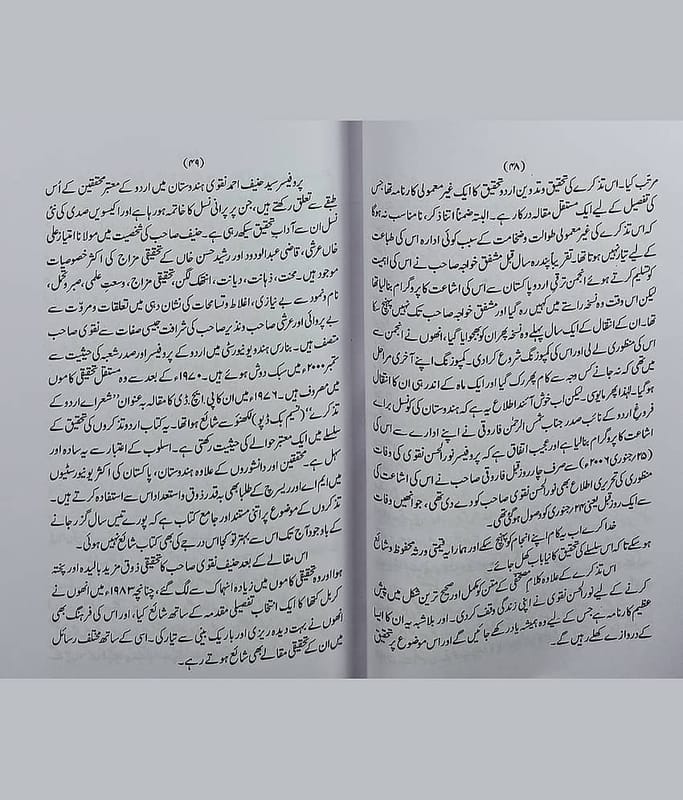 (۴۸)
مرتب کیا۔ اس تذکرے کی تحقیق و تدوین اردو تحقیق کا ایک غیر معمولی کارنامہ تھا جس
کی تفصیل کے لیے ایک مستقل مقالہ درکار ہے۔ البتہ ضمناً اتنا ذکر نامناسب نہ ہوگا
کہ اس تذکرے کی غیر معمولی طوالت و ضخامت کے سبب کوئی ادارہ اس کی طباعت
کے لیے تیار نہیں ہوتا تھا۔ تقریباً پندرہ سال قبل مشفق خواجہ صاحب نے اس کی اہمیت
کو تسلیم کرتے ہوئے انجمن ترقی اردو پاکستان سے اس کی اشاعت کا پروگرام بنا لیا تھا
لیکن اس وقت وہ نسخہ راستے میں کہیں رہ گیا اور مشفق خواجہ صاحب تک نہیں پہنچ سکا
تھا۔ ان کے انتقال کے ایک سال پہلے وہ نسخہ پھر ان کو بھجوایا گیا، انھوں نے انجمن سے
اس کی منظوری لے لی اور اس کی کمپوزنگ شروع کرادی۔ کمپوزنگ اپنے آخری مراحل
میں تھی کہ نہ جانے کس وجہ سے کام پھر رک گیا اور ایک ماہ کے اندر ہی ان کا انتقال
ہوگیا۔ لہٰذا پھر مایوسی۔ لیکن اب خوش آئند اطلاع یہ ہے کہ ہندوستان کی کونسل برائے
فروغ اردو کے نائب صدر جناب شمس الرحمٰن فاروقی نے اپنے ادارے سے اس کی
اشاعت کا پروگرام بنا لیا ہے اور عجیب اتفاق ہے کہ پروفیسر نورالحسن نقوی کی وفات
(۲۵ جنوری ۲۰۰۶ء) سے صرف چار روز قبل فاروقی صاحب نے اس کی اشاعت کی
منظوری کی تحریری اطلاع بھی نورالحسن نقوی صاحب کو دے دی تھی، جو انھیں وفات
سے ایک روز قبل یعنی ۲۴ جنوری کو وصول ہوگئی تھی۔
خدا کرے اب یہ کام اپنے انجام کو پہنچ سکے اور ہمارا یہ قیمتی ورثہ محفوظ و شائع
ہو سکے تاکہ اس سلسلے کی تحقیق کا نیا باب کھل جائے۔
اس تذکرے کے علاوہ کلام مصحفی کے متن کو مکمل اور صحیح ترین شکل میں پیش
کرنے کے لیے نورالحسن نقوی نے اپنی زندگی وقف کردی۔ اور بلاشبہ یہ ان کا ایسا
عظیم کارنامہ ہے جس کے لیے وہ ہمیشہ یاد رکھے جائیں گے اور اس موضوع پر تحقیق
کے دروازے کھلے رہیں گے۔
(۴۹)
پروفیسر سید حنیف احمد نقوی ہندوستان میں اردو کے معتبر محققین کے اُس
طبقے سے تعلق رکھتے ہیں، جن پر پرانی نسل کا خاتمہ ہو رہا ہے اور اکیسویں صدی کی نئی
نسل ان سے آداب تحقیق سیکھ رہی ہے۔ حنیف صاحب کی شخصیت میں مولانا امتیاز علی
خاں عرشی، قاضی عبدالودود اور رشید حسن خاں کے تحقیقی مزاج کی اکثر خصوصیات
موجود ہیں۔ محنت، ذہانت، دیانت، انتھک لگن، تحقیقی مزاج، وسعتِ علمی، صبر و تحمل،
نام و نمود سے بے نیازی، اغلاط و تسامحات کی نشان دہی میں تعلقات و مروّت سے
بے پروائی اور عرشی صاحب و نذیر صاحب کی شرافت جیسی صفات سے نقوی صاحب
متصف ہیں۔ بنارس ہندو یونیورسٹی میں اردو کے پروفیسر اور صدر شعبہ کی حیثیت سے
ستمبر ۲۰۰۰ء میں سبک دوش ہوئے ہیں۔ ۱۹۷۰ء کے بعد سے وہ مستقل تحقیقی کاموں
میں مصروف ہیں۔ ۱۹۷۶ء میں ان کا پی۔ ایچ۔ ڈی کا مقالہ بہ عنوان ”شعرائے اردو کے
تذکرے“ (نسیم بک ڈپو) لکھنؤ سے شائع ہوا تھا۔ یہ کتاب اردو تذکروں کی تحقیق کے
سلسلے میں ایک معتبر حوالے کی حیثیت رکھتی ہے۔ اسلوب کے اعتبار سے یہ سادہ اور
سہل ہے۔ محققین اور دانشوروں کے علاوہ ہندوستان، پاکستان کی اکثر یونیورسٹیوں
میں ایم اے اور ریسرچ کے طلبا بھی بقدر ذوق و استعداد اس سے استفادہ کرتے ہیں۔
تذکروں کے موضوع پر اتنی مستند اور جامع کتاب ہے کہ پورے تیس سال گزر جانے
کے باوجود آج تک اس سے بہتر تو کجا اس درجے کی بھی کتاب شائع نہیں ہوئی۔
اس مقالے کے بعد حنیف نقوی صاحب کا تحقیقی ذوق مزید بالیدہ اور پختہ
ہوا اور وہ تحقیقی کاموں میں زیادہ انہماک سے لگ گئے، چنانچہ ۱۹۸۳ء میں انھوں نے
کربل کتھا کا ایک انتخاب تفصیلی مقدمہ کے ساتھ شائع کیا، اور اس کی فرہنگ بھی
انھوں نے بہت دیدہ ریزی اور باریک بینی سے تیار کی۔ اسی کے ساتھ مختلف رسائل
میں ان کے تحقیقی مقالے بھی شائع ہوتے رہے۔